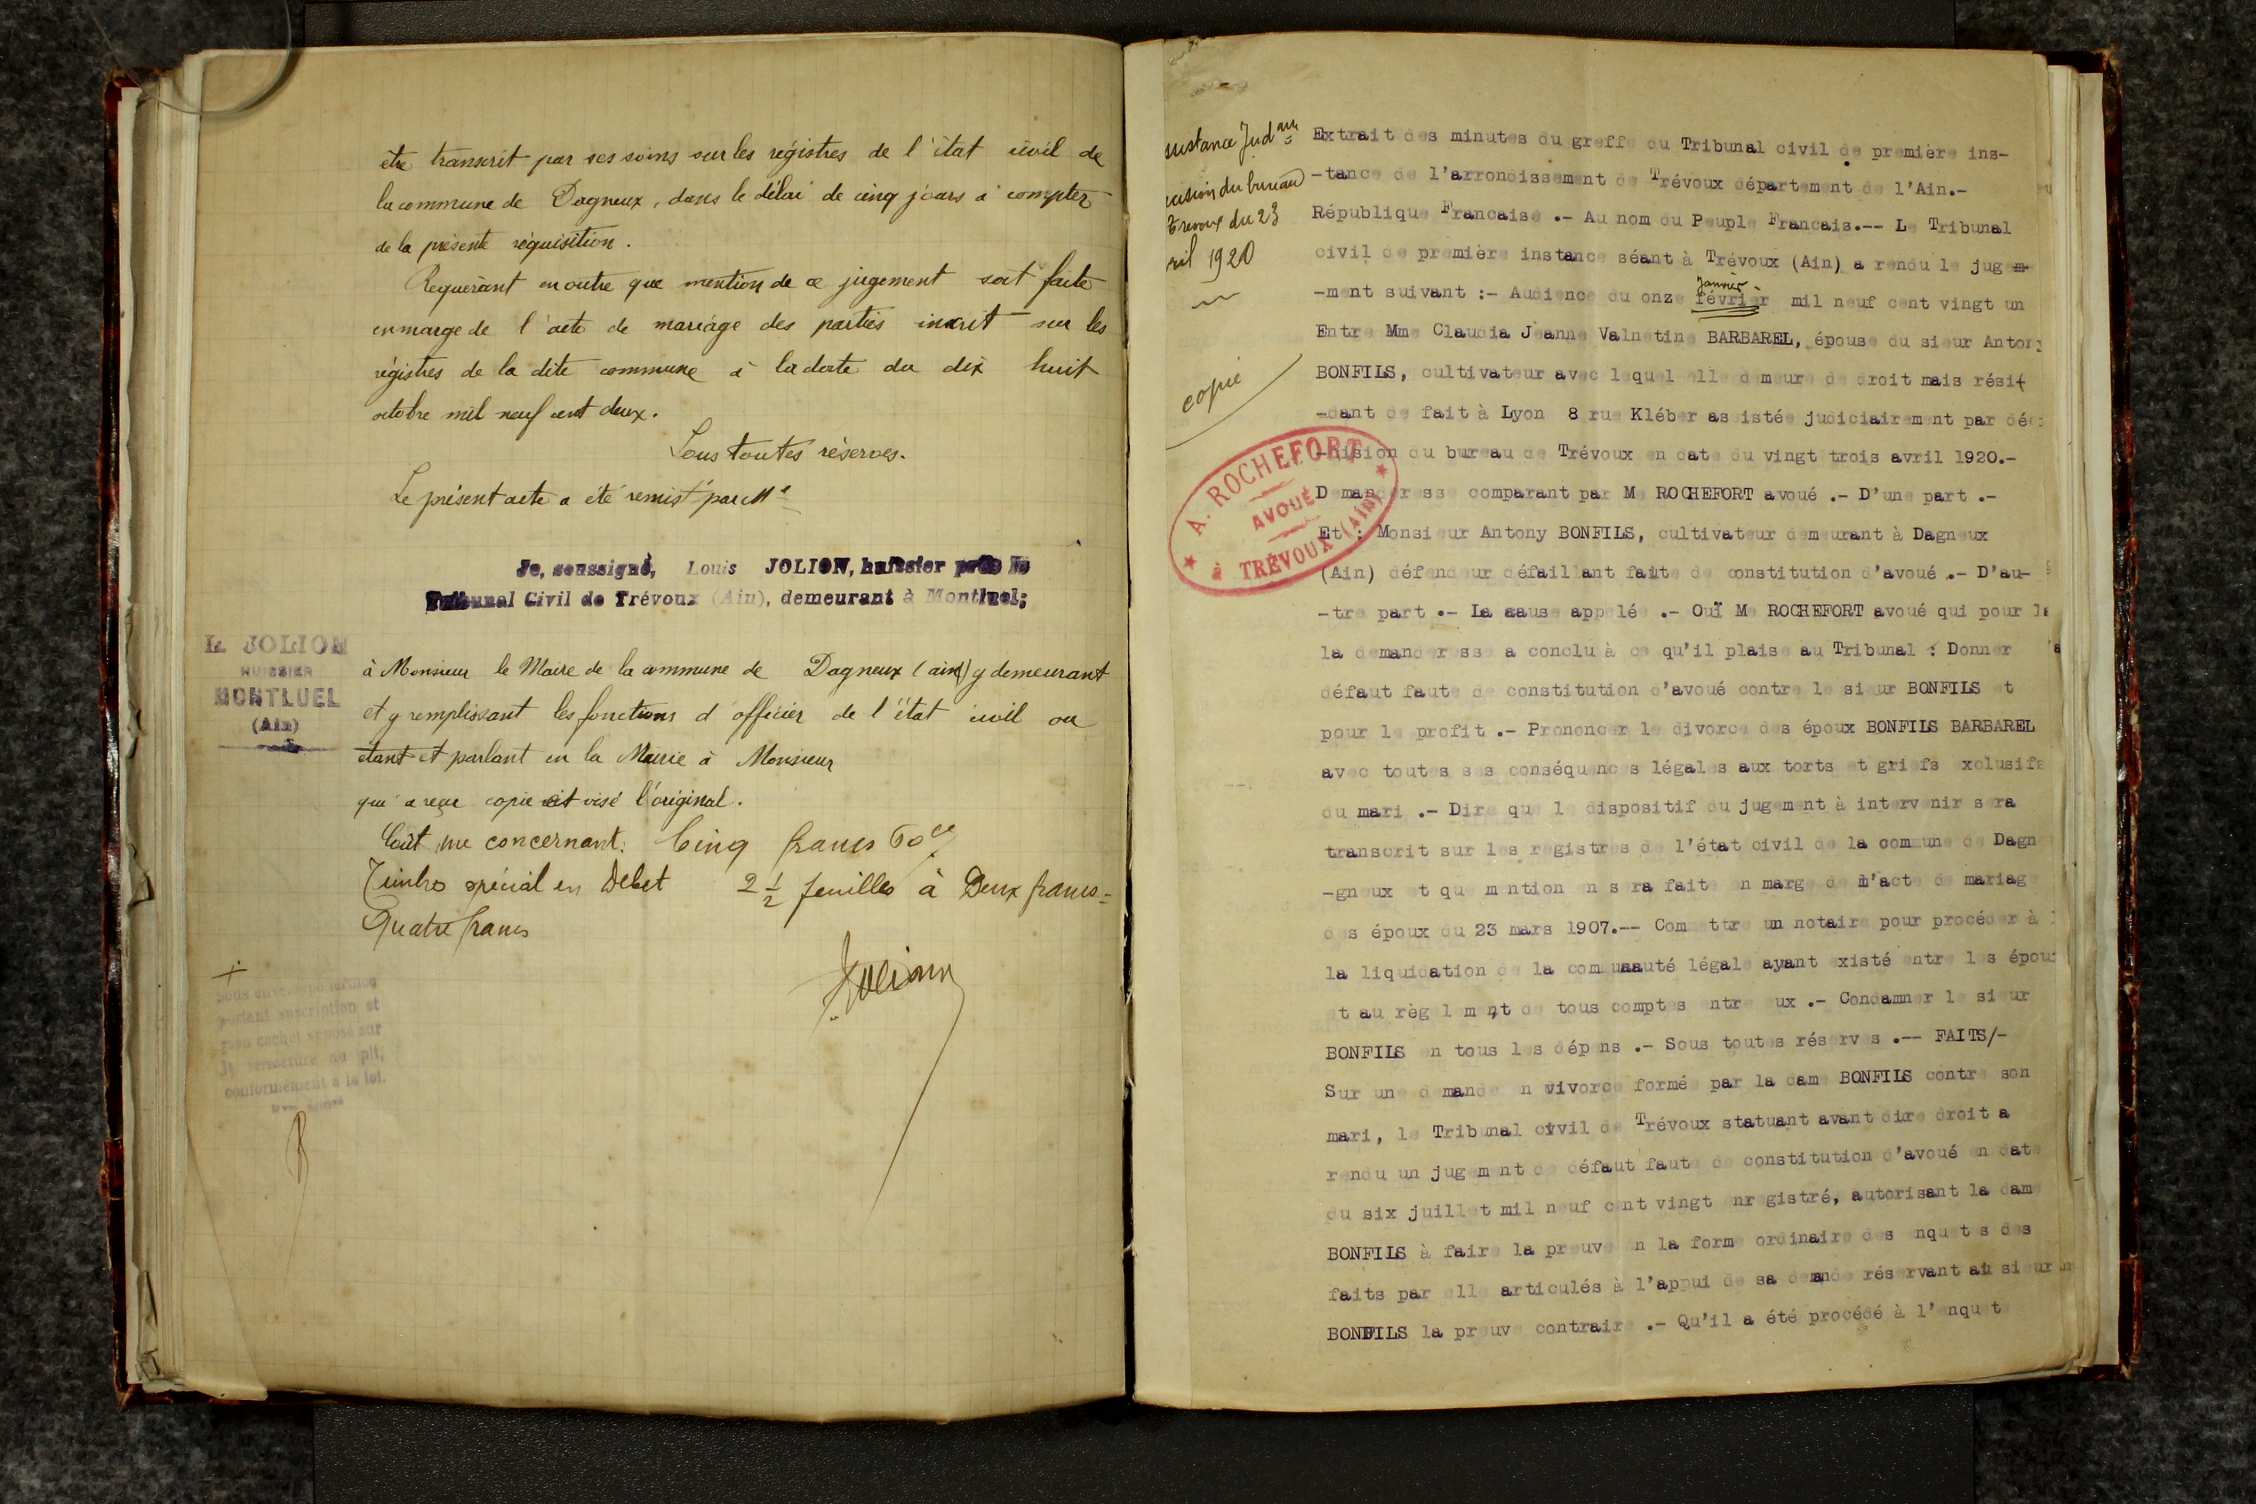 être transcrit par ses soins sur les régistres de l'état civil de
la commune de Dagneux, dans le délai de cinq jours à compter
de la présente réquisition.
Requérant en outre que mention de ce jugement soit faite
en marge de l'acte de mariage des parties inscrit sur les
régistres de la dite commune à la date du dix huit
octobre mil neuf cent deux.
Sous toutes réserves.
Le présent acte a été remis par Me
Je, soussigné, Louis JOLION, huissier près le
Tribunal Civil de Trévoux (Ain), demeurant à Montluel;
L. JOLION
HUISSIER
MONTLUEL
(Ain)
à Monsieur le Maire de la commune de Dagneux (ain) y demeurant
et y remplissant les fonctions d'officier de l'état civil ou
étant et parlant en la Mairie à Monsieur
qui a reçu copie et visé l'original.
Coût me concernant: Cinq francs 60 ce
Timbre spécial en Debet 2 1/2 feuilles à Deux francs =
Quatre francs
Jolion
+
Sous enveloppe fermée
portant suscription et
mon cachet apposé sur
la fermeture du pli,
conformément à la loi.
ssistance Judre
écision du bureau
Trevoux du 23
ril 1920
copie
A. ROCHEFORT
AVOUÉ
à TRÉVOUX (AIN)
Extrait des minutes du greffe du Tribunal civil de première ins-
-tance de l'arrondissement de Trévoux département de l'Ain.-
République Francaise .- Au nom du Peuple Francais.-- Le Tribunal
civil de première instance séant à Trévoux (Ain) a rendu le jugem-
janvier-
-ment suivant :- Audience du onze février mil neuf cent vingt un
Entre Mme Claudia Jeanne Valnetine BARBAREL, épouse du sieur Antony
BONFILS, cultivateur avec lequel elle demeure de droit mais rési-
-dant de fait à Lyon 8 rue Kléber assistée judiciairement par déc
-cision du bureau de Trévoux en date du vingt trois avril 1920.-
Demanderesse comparant par Me ROCHEFORT avoué .- D'une part .-
Et : Monsieur Antony BONFILS, cultivateur demeurant à Dagneux
(Ain) défendeur défaillant faute de constitution d'avoué .- D'au-
-tre part .- La cause appelée .- Ouï Me ROCHEFORT avoué qui pour la
la demanderesse a conclu à ce qu'il plaise au Tribunal : Donner
défaut faute de constitution d'avoué contre le sieur BONFILS et
pour le profit .- Prononcer le divorce des époux BONFILS BARBAREL
avec toutes ses conséquences légales aux torts et griefs exclusifs
du mari .- Dire que le dispositif du jugement à intervenir sera
transcrit sur les registres de l'état civil de la commune de Dagn
-gneux et que mention en sera faite en marge de l'acte de mariage
des époux du 23 mars 1907.-- Commettre un notaire pour procéder à l
la liquidation de la communauté légale ayant existé entre les époux
et au règelement de tous comptes entre eux .- Condamner le sieur
BONFILS en tous les dépens .- Sous toutes réserves .-- FAITS/-
Sur une demande en vivorce formée par la dame BONFILS contre son
mari, le Tribunal civil de Trévoux statuant avant dire droit a
rendu un jugement de défaut faute de constitution d'avoué en date
du six juillet mil neuf cent vingt enregistré, autorisant la dame
BONFILS à faire la preuve en la forme ordinaire des enquetes des
faits par elle articulés à l'appui de sa demande réservant au sieur
BONFILS la preuve contraire .- Qu'il a été procédé à l'enquete